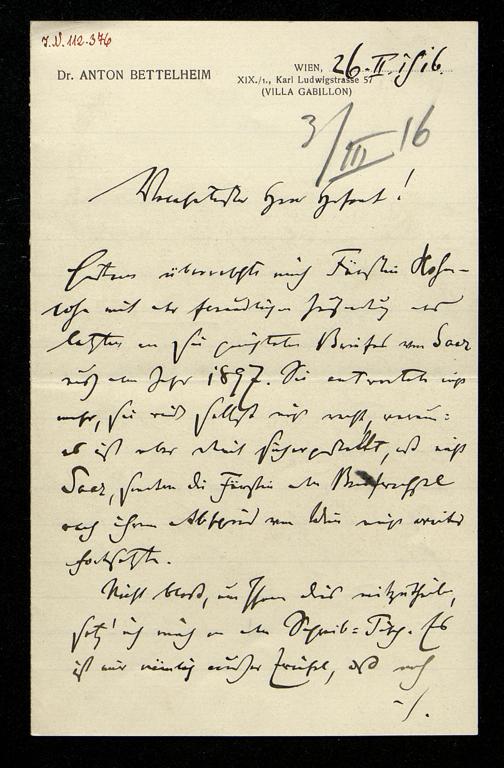 J.N. 112.376
Dr. ANTON BETTELHEIM
WIEN, 26.II.1916.
XIX./1., Karl Ludwigstrasse 57
(VILLA GABILLON)
3/III 16
Verehrtester Herr Hofrat!
Gestern überraschte mich Fürstin Hohen-
lohe mit der freundlichen Zusendung des
letzten an sie gerichteten Briefes von Saar
aus dem Jahr 1897. Sie antwortete nicht
mehr, sie weiß selbst nicht recht, warum:
es ist aber damit sichergestellt, daß nicht
Saar, sondern die Fürstin den Briefwechsel
nach ihrem Abschied von Wien nicht weiter
fortsetzte.
Nicht bloß, um Ihnen dies mitzutheilen,
setz' ich mich an den Schreib-Tisch. Es
ist mir nämlich außer Zweifel, daß noch